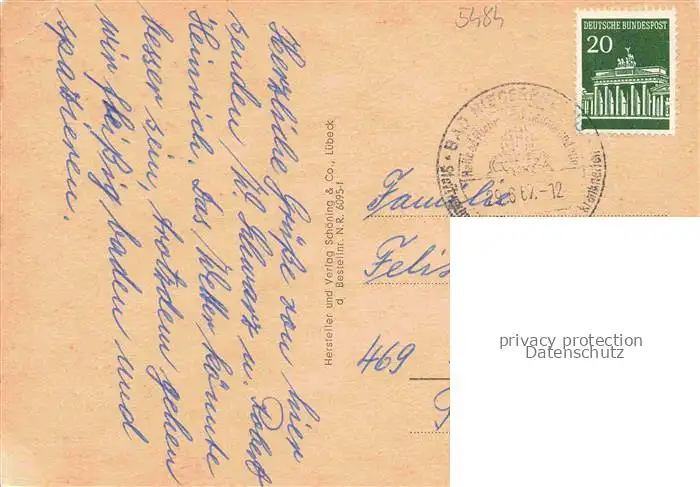 5484
DEUTSCHE BUNDESPOST
20
BAD
29.6.67.-12
Herzliche Grüße von hier
senden, W. Schwarz u. Robert
Heinrich. Das Wetter könnte
besser sein, trotzdem gehen
wir fleißig baden und
spazieren.
Hersteller und Verlag Schöning & Co., Lübeck
d Bestellnr. N.R. 6095-f
Familie
Felis
469
privacy protection
Datenschutz